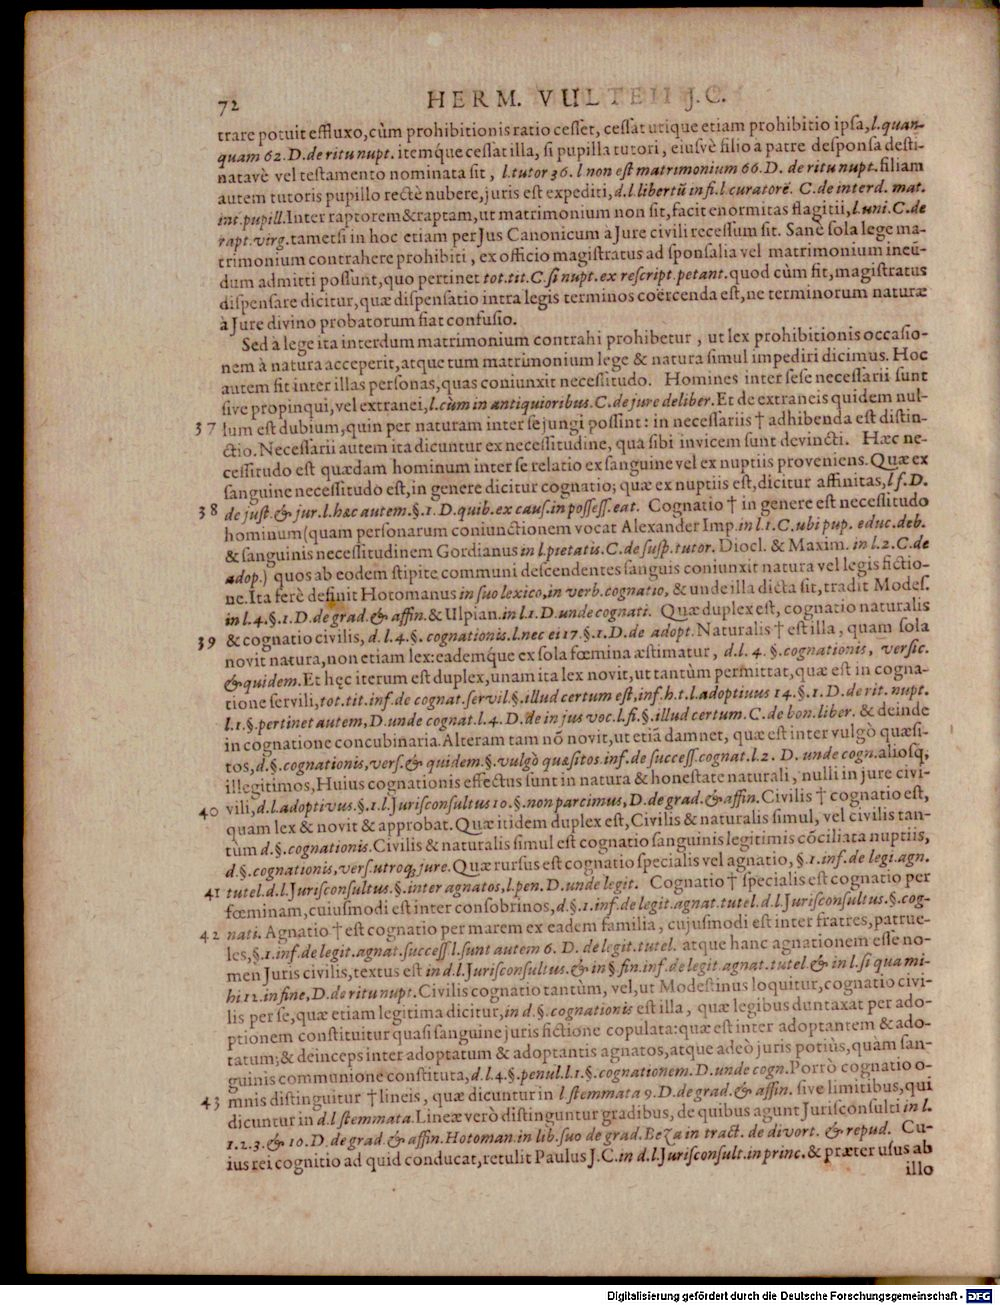 72 HERM. VULTEII J.C.
trare potuit effluxo, cùm prohibitionis ratio cesset, cessat utique etiam prohibitio ipsa, l. quan-
quam 62. D. de ritu nupt. itemque cessat illa, si pupilla tutori, eiusvè filio a patre desponsa desti-
natavè vel testamento nominata sit, l. tutor 36. l non est matrimonium 66. D. de ritu nupt. filiam
autem tutoris pupillo rectè nubere, juris est expediti, d. l. libertū in fi. l curatorē. C. de interd. mat.
int. pupill. Inter raptorem & raptam, ut matrimonium non sit, facit enormitas flagitii, l. uni. C. de
rapt. virg. tametsi in hoc etiam per Jus Canonicum à Jure civili recessum sit. Sanè sola lege ma-
trimonium contrahere prohibiti, ex officio magistratus ad sponsalia vel matrimonium ineū-
dum admitti possunt, quo pertinet tot. tit. C. si nupt. ex rescript. petant. quod cùm fit, magistratus
dispensare dicitur, quæ dispensatio intra legis terminos coërcenda est, ne terminorum naturæ
à Jure divino probatorum fiat confusio.
Sed à lege ita interdum matrimonium contrahi prohibetur, ut lex prohibitionis occasio-
nem à natura acceperit, atque tum matrimonium lege & natura simul impediri dicimus. Hoc
autem fit inter illas personas, quas coniunxit necessitudo. Homines inter sese necessarii sunt
sive propinqui, vel extranei, l. cùm in antiquioribus. C. de jure deliber. Et de extraneis quidem nul-
37 lum est dubium, quin per naturam inter se jungi possint: in necessariis † adhibenda est distin-
ctio. Necessarii autem ita dicuntur ex necessitudine, qua sibi invicem sunt devincti. Hæc ne-
cessitudo est quædam hominum inter se relatio ex sanguine vel ex nuptiis proveniens. Quæ ex
sanguine necessitudo est, in genere dicitur cognatio; quæ ex nuptiis est, dicitur affinitas, l f. D.
38 de just. & jur. l. hæc autem. §. 1. D. quib. ex caus. in possess. eat. Cognatio † in genere est necessitudo
hominum (quam personarum coniunctionem vocat Alexander Imp. in l. 1. C. ubi pup. educ. deb.
& sanguinis necessitudinem Gordianus in l. pietatis. C. de susp. tutor. Diocl. & Maxim. in l. 2. C. de
adop.) quos ab eodem stipite communi descendentes sanguis coniunxit natura vel legis fictio-
ne. Ita ferè definit Hotomanus in suo lexico, in verb. cognatio, & unde illa dicta sit, tradit Modes.
in l. 4. §. 1. D. de grad. & affin. & Ulpian. in l. 1. D. unde cognati. Quæ duplex est, cognatio naturalis
39 & cognatio civilis, d. l. 4. §. cognationis. l. nec ei 17. §. 1. D. de adopt. Naturalis † est illa, quam sola
novit natura, non etiam lex: eademque ex sola fœmina æstimatur, d. l. 4. §. cognationis, versic.
& quidem. Et hęc iterum est duplex, unam ita lex novit, ut tantùm permittat, quæ est in cogna-
tione servili, tot. tit. inf. de cognat. servil. §. illud certum est, inf. h. t. l. adoptivus 14. §. 1. D. de rit. nupt.
l. 1. §. pertinet autem, D. unde cognat. l. 4. D. de in jus voc. l. fi. §. illud certum. C. de bon. liber. & deinde
in cognatione concubinaria. Alteram tam nō novit, ut etiā damnet, quæ est inter vulgò quæsi-
tos, d. §. cognationis, vers. & quidem. §. vulgò quæsitos. inf. de success. cognat. l. 2. D. unde cogn. aliosq;
illegitimos, Huius cognationis effectus sunt in natura & honestate naturali, nulli in jure civi-
40 vili, d. l. adoptivus. §. 1. l. Jurisconsultus 10. §. non parcimus, D. de grad. & affin. Civilis † cognatio est,
quam lex & novit & approbat. Quæ itidem duplex est, Civilis & naturalis simul, vel civilis tan-
tùm d. §. cognationis. Civilis & naturalis simul est cognatio sanguinis legitimis cōciliata nuptiis,
d. §. cognationis, vers. utroq; jure. Quæ rursus est cognatio specialis vel agnatio, §. 1. inf. de legi. agn.
41 tutel. d. l. Jurisconsultus. §. inter agnatos, l. pen. D. unde legit. Cognatio † specialis est cognatio per
fœminam, cuiusmodi est inter consobrinos, d. §. 1. inf. de legit. agnat. tutel. d. l. Jurisconsultus. §. cog-
42 nati. Agnatio † est cognatio per marem ex eadem familia, cujusmodi est inter fratres, patrue-
les, §. 1. inf. de legit. agnat. success. l. sunt autem 6. D. de legit. tutel. atque hanc agnationem esse no-
men Juris civilis, textus est in d. l. Jurisconsultus. & in § fin. inf. de legit. agnat. tutel. & in l. si qua mi-
hi. 12. in fine, D. de ritu nupt. Civilis cognatio tantùm, vel, ut Modestinus loquitur, cognatio civi-
lis per se, quæ etiam legitima dicitur, in d. §. cognationis est illa, quæ legibus duntaxat per ado-
ptionem constituitur quasi sanguine juris fictione copulata: quæ est inter adoptantem & ado-
tatum; & deinceps inter adoptatum & adoptantis agnatos, atque adeò juris potiùs, quàm san-
guinis communione constituta, d. l. 4. §. penul. l. 1. §. cognationem. D. unde cogn. Porrò cognatio o-
43 mnis distinguitur † lineis, quæ dicuntur in l stemmata 9. D. de grad. & affin. sive limitibus, qui
dicuntur in d. l stemmata. Lineæ verò distinguntur gradibus, de quibus agunt Jurisconsulti in l.
1. 2. 3. & 10. D. de grad. & affin. Hotoman. in lib. suo de grad. Beza in tract. de divort. & repud. Cu-
ius rei cognitio ad quid conducat, retulit Paulus J. C. in d. l. Jurisconsult. in princ. & præter usus ab
illo
Digitalisierung gefördert durch die Deutsche Forschungsgemeinschaft - DFG